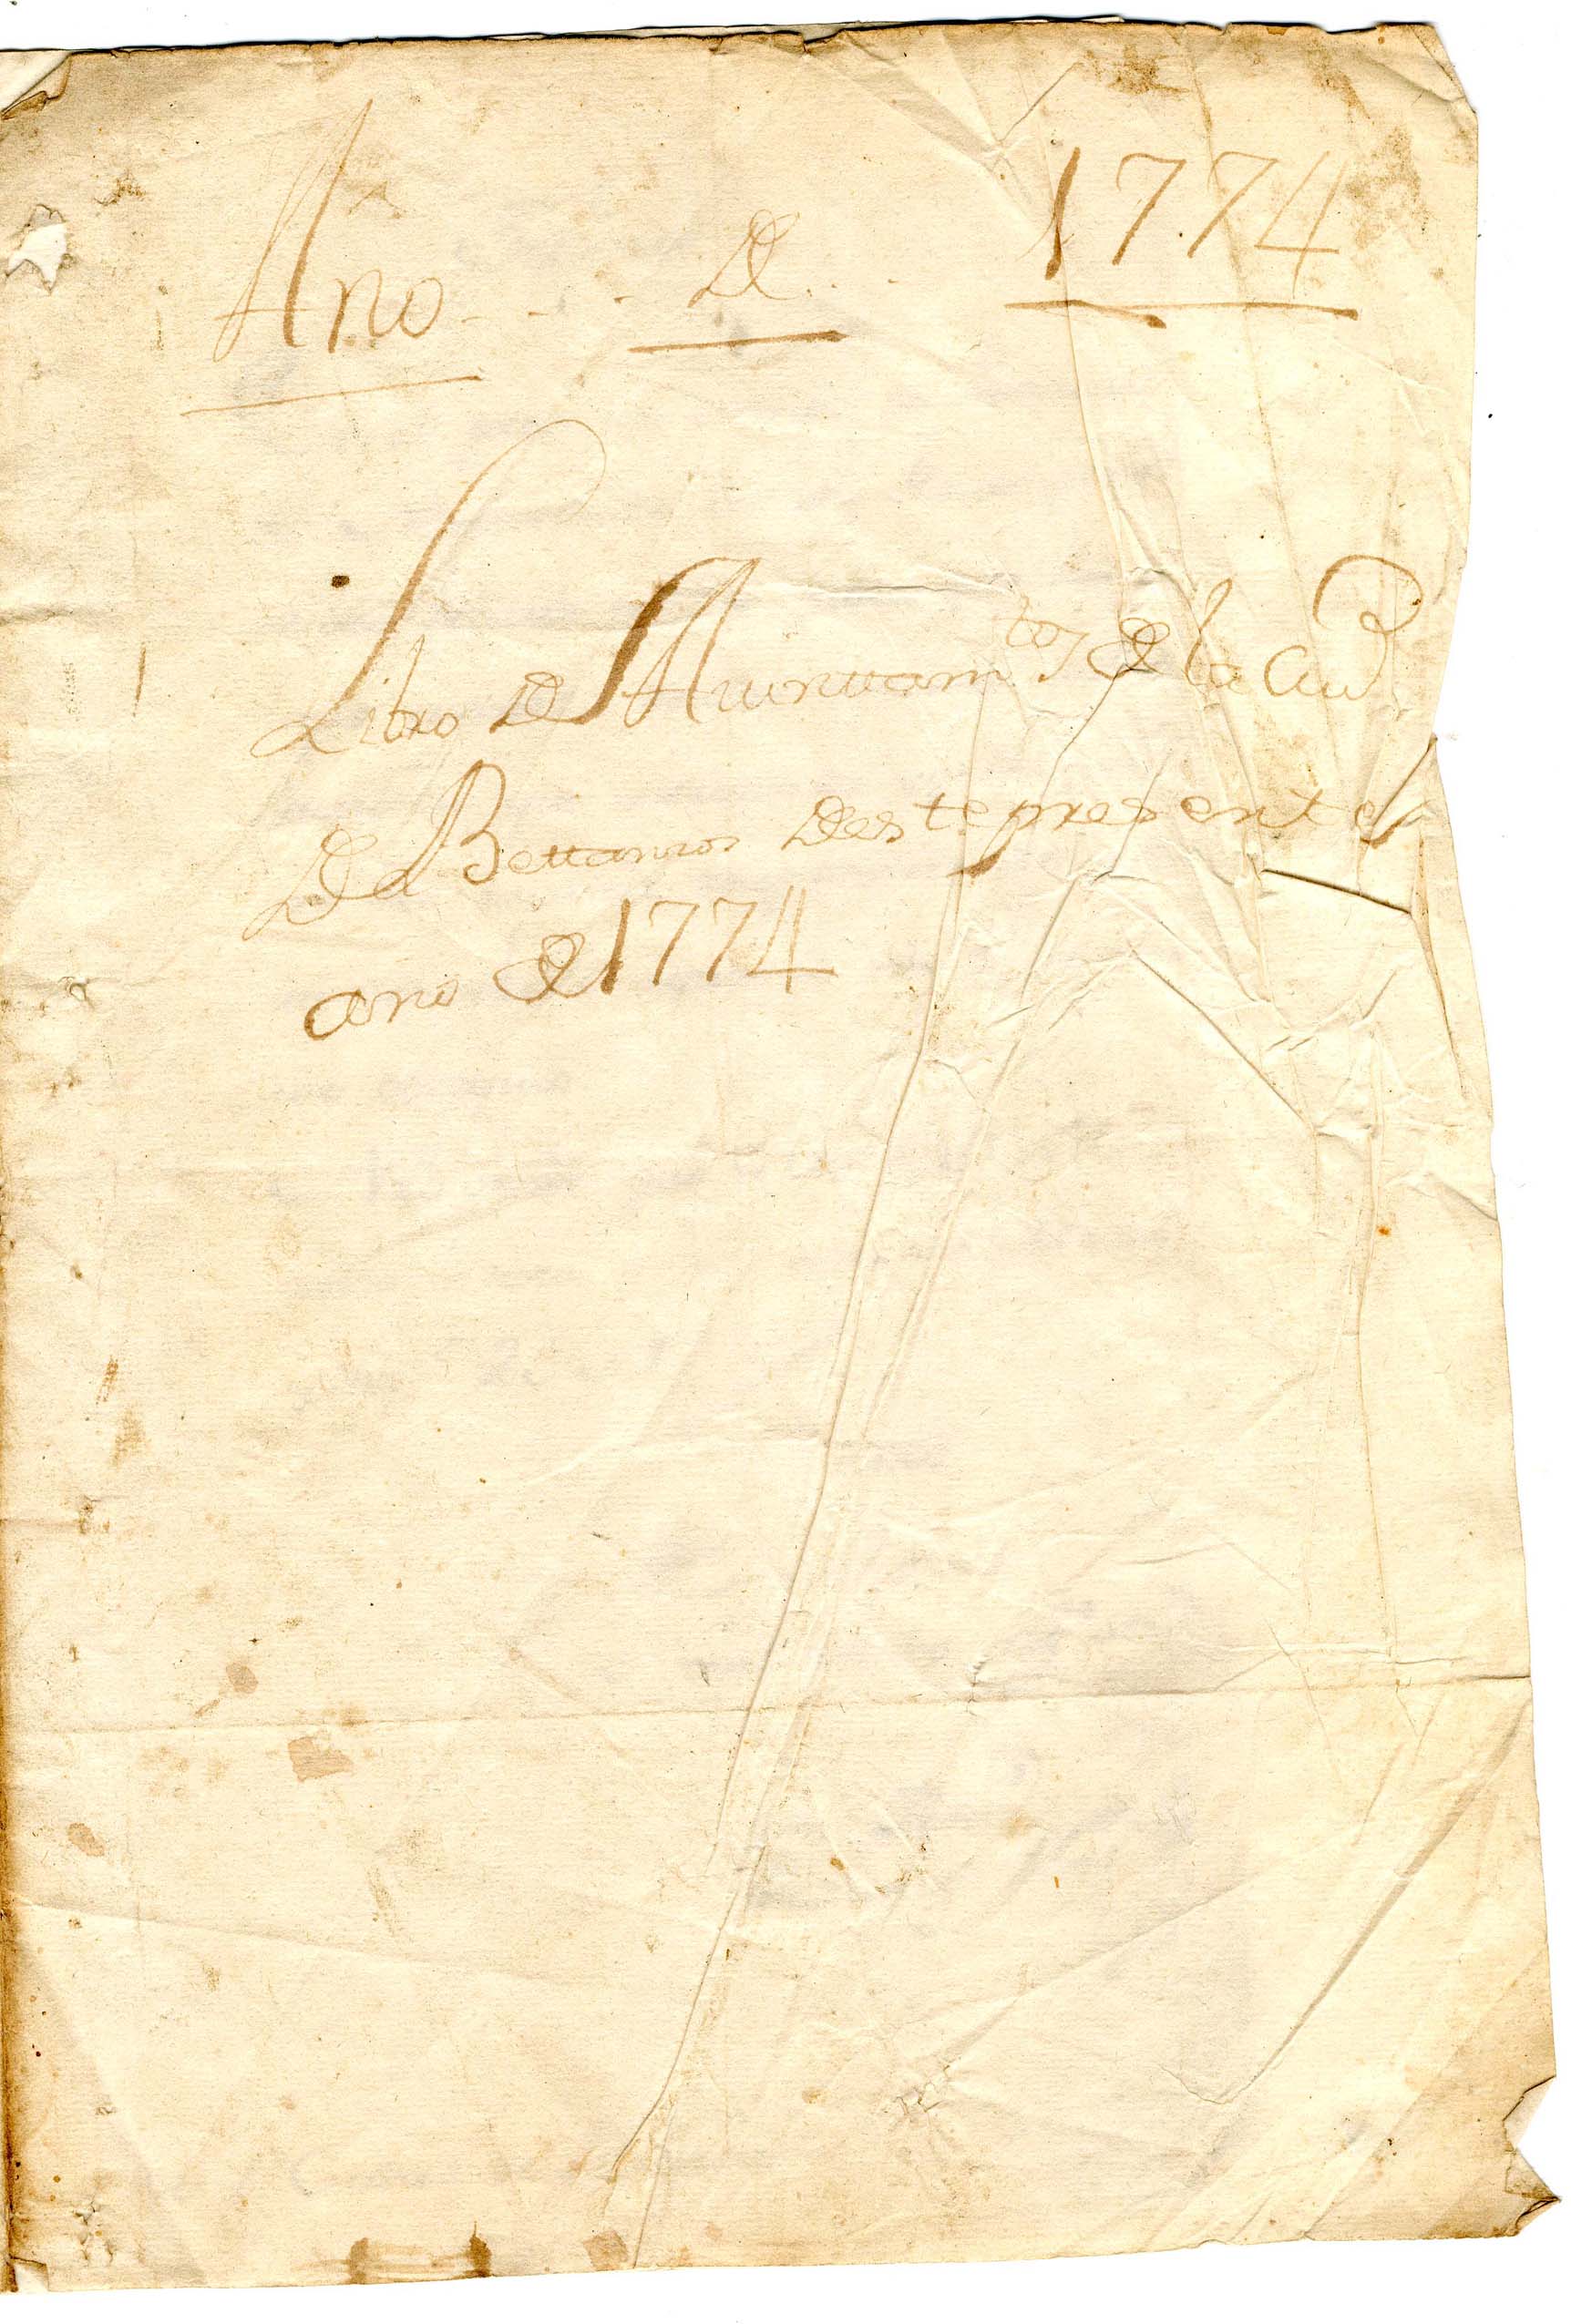 Año . . . de . . . 1774
Libro de Aiuntam.tos de la Ciud.
de Bettanzos deste presente
año de 1774